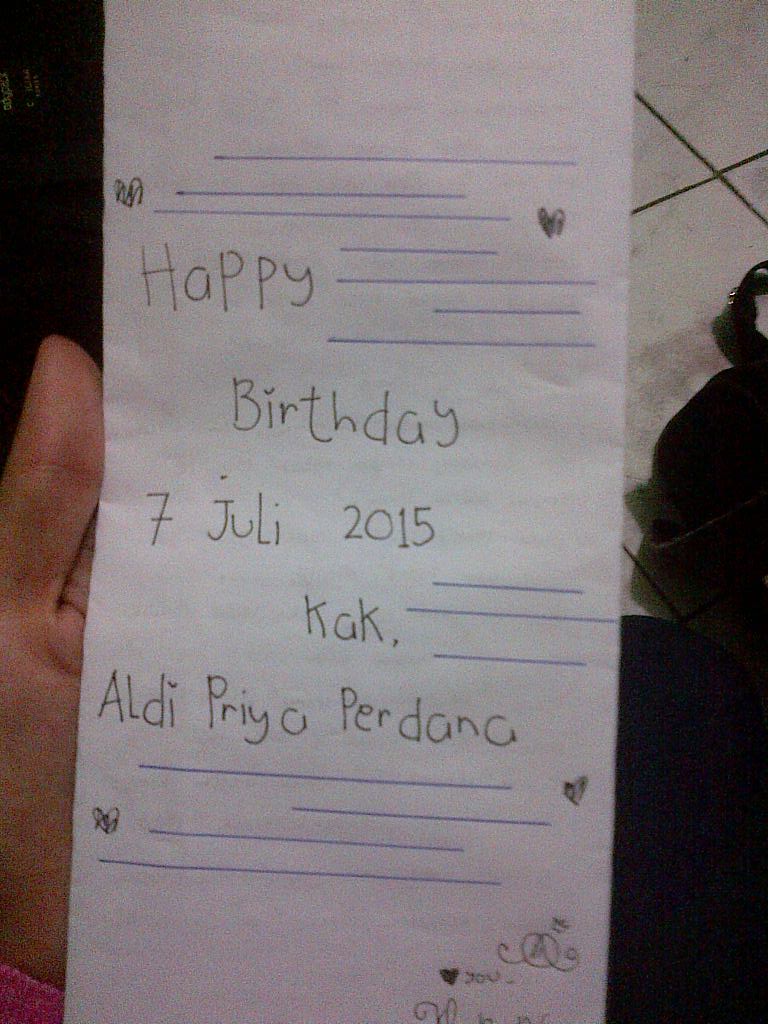 Happy
Birthday
7 Juli 2015
Kak,
Aldi Priya Perdana
you